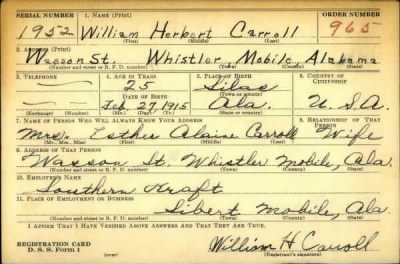 SERIAL NUMBER 1. NAME (Print) ORDER NUMBER
1952 William Herbert Carroll 965
(First) (Middle) (Last)
2. ADDRESS (Print)
Wasson St. Whistler Mobile Alabama
(Number and street or R. F. D. number) (Town) (County) (State)
3. TELEPHONE 4. AGE IN YEARS 5. PLACE OF BIRTH 6. COUNTRY OF CITIZENSHIP
25 Silas
DATE OF BIRTH (Town or county)
Feb. 27, 1915 Ala. U.S.A.
(Exchange) (Number) (Mo.) (Day) (Yr.) (State or country)
7. NAME OF PERSON WHO WILL ALWAYS KNOW YOUR ADDRESS 8. RELATIONSHIP OF THAT PERSON
Mrs. Esther Carroll Wife
(Mr., Mrs., Miss) (First) (Middle) (Last)
9. ADDRESS OF THAT PERSON
Wasson St. Whistler Mobile, Ala.
(Number and street or R. F. D. number) (Town) (County) (State)
10. EMPLOYER'S NAME
Southern Kraft
11. PLACE OF EMPLOYMENT OR BUSINESS
Mobile, Ala.
(Number and street or R. F. D. number) (Town) (County) (State)
I AFFIRM THAT I HAVE VERIFIED ABOVE ANSWERS AND THAT THEY ARE TRUE.
REGISTRATION CARD
D. S. S. Form 1 William H Carroll
(Registrant's signature)